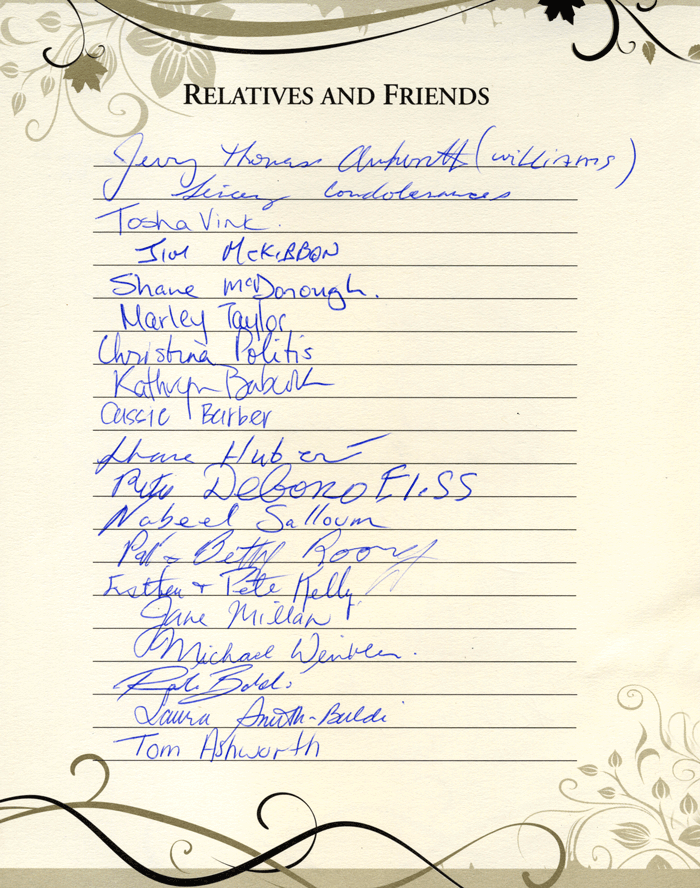 RELATIVES AND FRIENDS
Jerry Thomas (williams)
Tosha Vink.
Jim McKIBBON
Shane McDonough.
Marley Taylor
Christina Politis
Kathryn Babcock
Cassie Barber
Huber
DeBono
Nabeel Salloum
Pat & Betty Rooney
Esther & Pete Kelly
Jane Millan
Michael Winkler.
Laura Smith-Baldi
Tom Ashworth